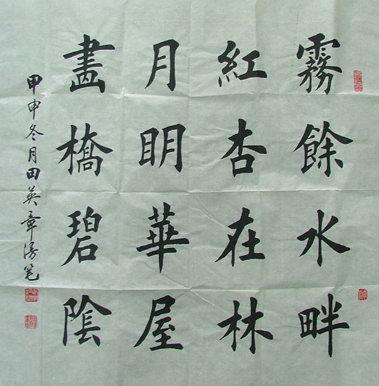 霧餘水畔
紅杏在林
月明華屋
畫橋碧陰
甲申冬月田英章漫笔